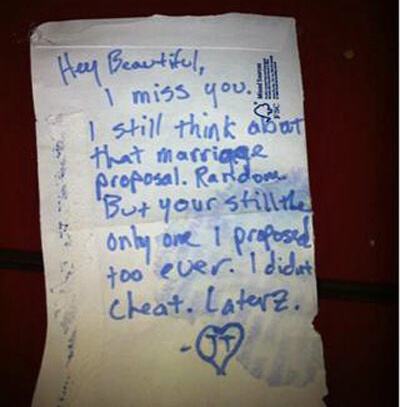 Hey Beautiful,
I miss you.
I still think about
that marriage
proposal. Random
But your still the
only one I proposed
too ever. I didnt
cheat. Laterz.
- JT
Mixed Sources
FSC